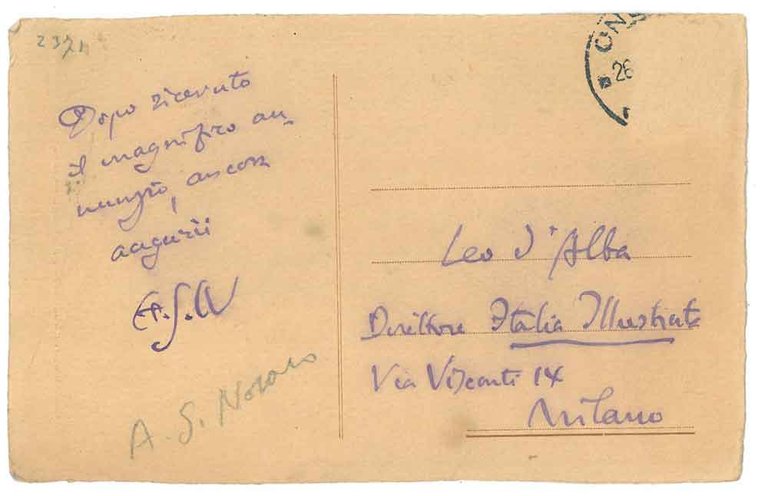 Dopo ricevuto
il magnifico an
nunzio, ancora
augurii
A. G. Novaro
26
Leo d'Alba
Direttore Italia Illustrata
Via Visconti 14
Milano